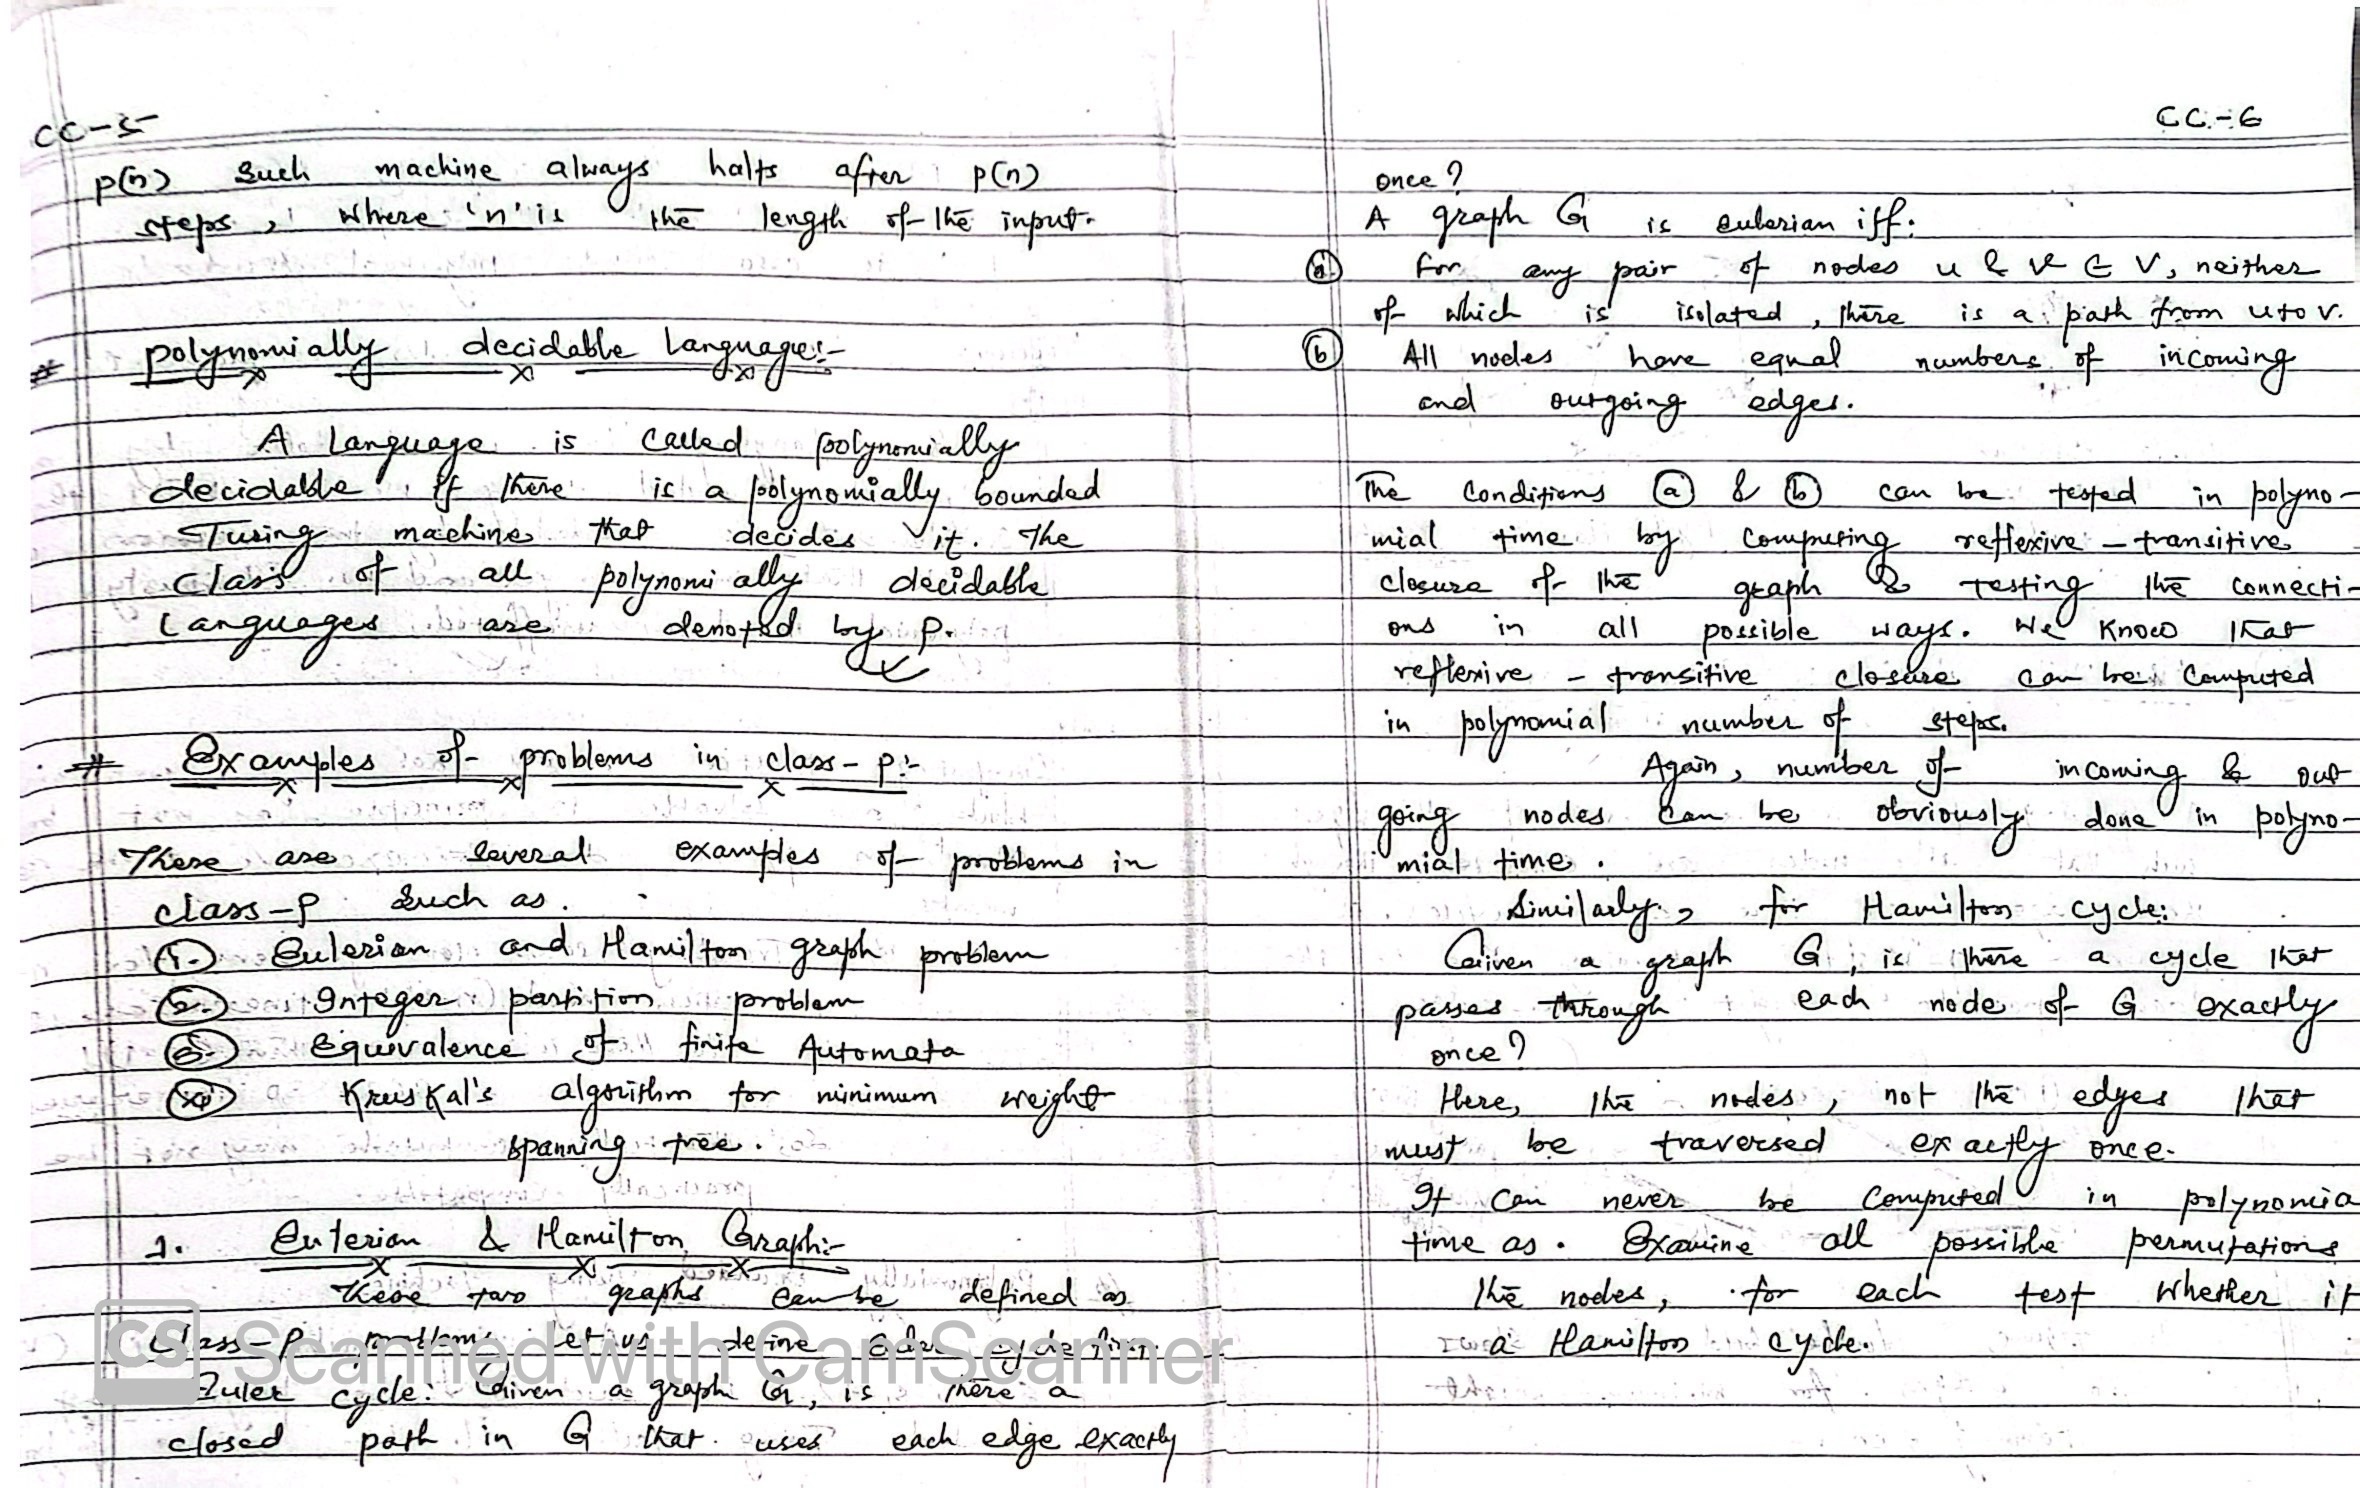 CC-5
p(n) such machine always halts after p(n)
steps, where 'n' is the length of the input.
# polynomially decidable Language:-
A Language is called polynomially
decidable if there is a polynomially bounded
Turing machine that decides it. The
class of all polynomially decidable
Languages are denoted by P.
# Examples of problems in class-P:-
There are several examples of problems in
class-P such as.
1. Eulerian and Hamilton graph problem
2. Integer partition problem
3. Equivalence of finite Automata
Kruskal's algorithm for minimum weight
spanning tree.
1. Eulerian & Hamilton Graph:-
These two graphs can be defined as
Class-P problems. Let us define Euler cycle first.
Euler cycle: Given a graph G, is there a
closed path in G that uses each edge exactly
CC-6
once?
A graph G is eulerian iff:
(a) For any pair of nodes u & v ∈ V, neither
of which is isolated, there is a path from u to v.
(b) All nodes have equal numbers of incoming
and outgoing edges.
The Conditions (a) & (b) can be tested in polyno-
mial time by computing reflexive-transitive
closure of the graph & testing the connecti-
ons in all possible ways. We know that
reflexive-transitive closure can be computed
in polynomial number of steps.
Again, number of incoming & out
going nodes can be obviously done in polyno-
mial time.
Similarly, for Hamilton cycle:
Given a graph G, is there a cycle that
passes through each node of G exactly
once?
Here, the nodes, not the edges that
must be traversed exactly once.
It can never be computed in polynomia
time as. Examine all possible permutations
the nodes, for each test whether it
a Hamilton cycle.
CS Scanned with CamScanner